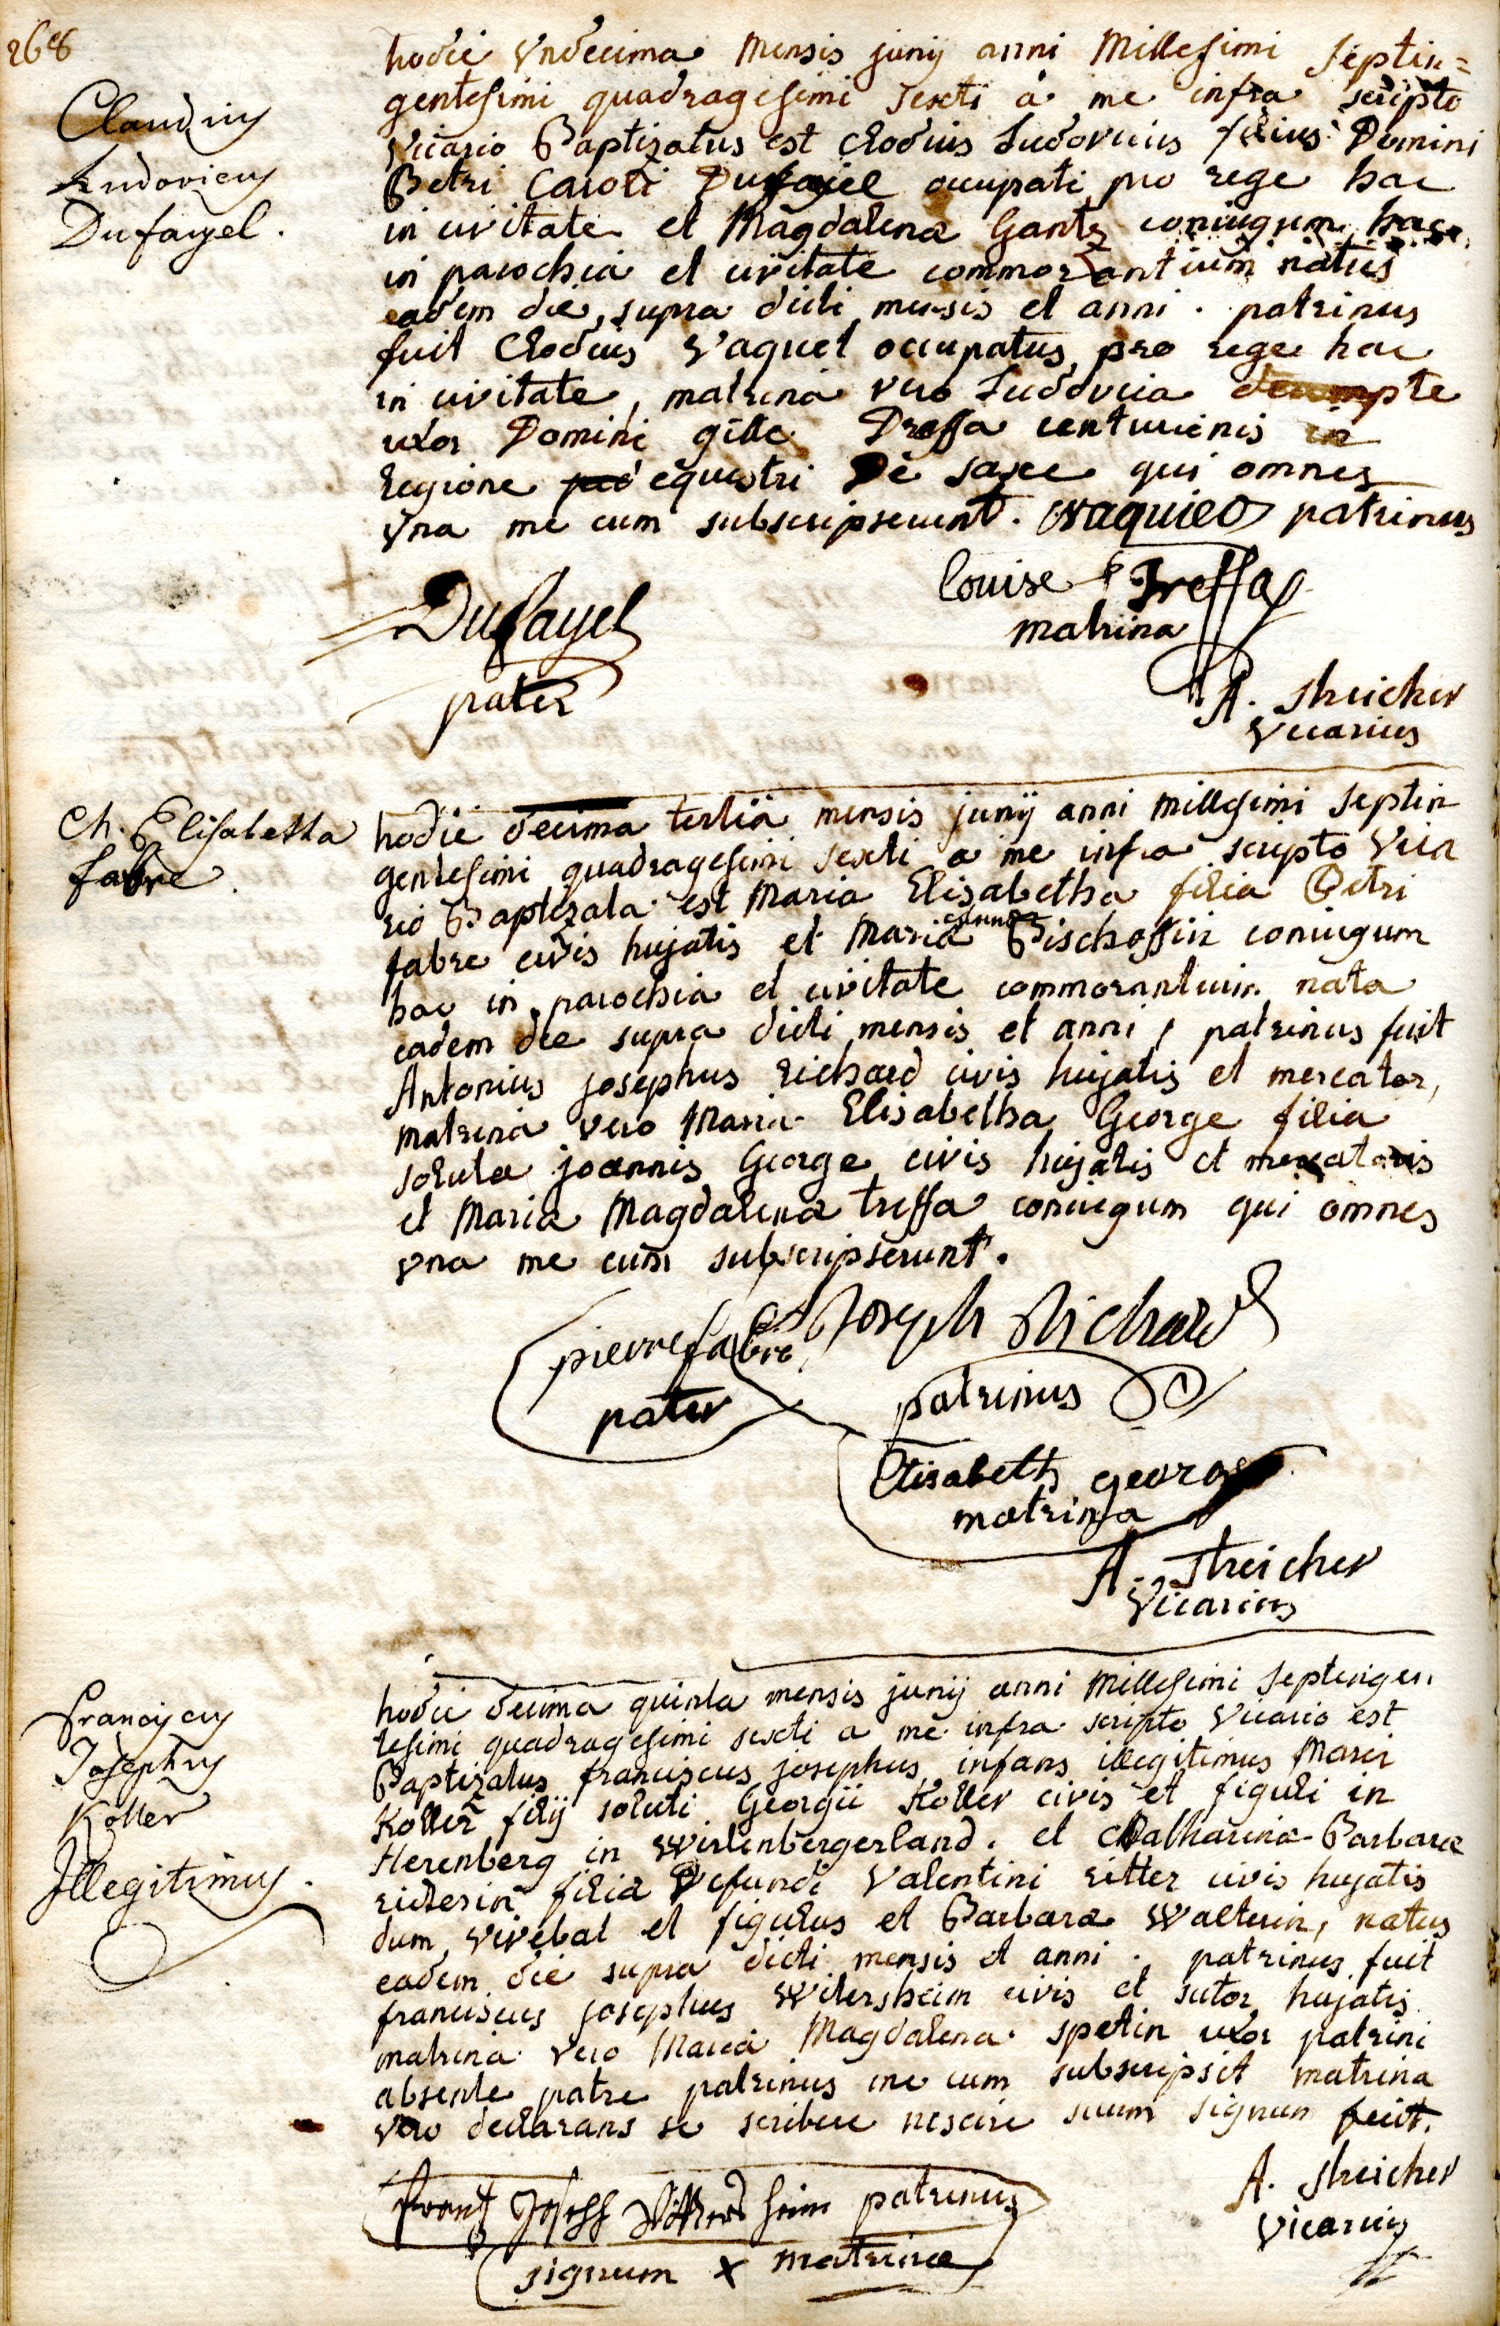 268
Claudius
Ludovicus
Dufayel.
hodie Undecima Mensis junij anni Millesimi Septin=
gentesimi quadragesimi sexti a me infra scripto
Vicario Baptizatus est Clodius Ludovicus filius Domini
Petri Caroli Dufayel occupati pro rege hac
in civitate et Magdalena Gantz coniugum hac
in parochia et civitate commorantium natus
eadem die supra dicti mensis et anni . patrinus
fuit Clodius Vaquet occupatus pro rege hac
in civitate, matrina vero Ludovica
uxor Domini gille Dreffa centurionis in
Legione equestri De saxe qui omnes
Una me cum subscripserunt. patrinus
Dufayel
pater
louise Treffa
matrina
A. Streicher
Vicarius
Ch. Elisabetha
fabre.
hodie decima tertia mensis junij anni millesimi septin
gentesimi quadragesimi sexti a me infra scripto Vica
rio Baptizata est Maria Elisabetha filia Petri
fabre civis hujatis et Maria Bischoffin coniugum
hac in parochia et civitate commorantium nata
eadem die supra dicti mensis et anni, patrinus fuit
Antonius josephus Richard civis hujatis et mercator,
matrina vero Maria Elisabetha George filia
soluta joannis George civis hujatis et mercatoris
et Maria Magdalena treffa coniugum qui omnes
Una me cum subscripserunt.
pierre fabre
pater
Joseph Richard
patrinus
Elisabeth george
matrina
A. Streicher
Vicarius
Franciscus
Josephus
Koller
Illegitimus.
hodie decima quinta mensis junij anni Millesimi Septingen
tesimi quadragesimi sexti a me infra scripto Vicario est
Baptizatus franciscus josephus infans illegitimus
Koller filij soluti Georgii Koller civis et figuli in
Herenberg in Wirtenbergerland. et Catharina Barbara
ritterin filia Defuncti Valentini ritter civis hujatis
dum vivebat et figulus et Barbara Walterin, natus
eadem die supra dicti mensis et anni . patrinus fuit
franciscus josephus Witersheim civis et sutor hujatis
matrina vero Maria Magdalena spetin uxor patrini
absente patre patrinus me cum subscripsit matrina
vero declarans se scribere nescire suum signum fecit.
Frantz Joseph Wittersheim patrinus
signum x matrinae
A. Streicher
Vicarius